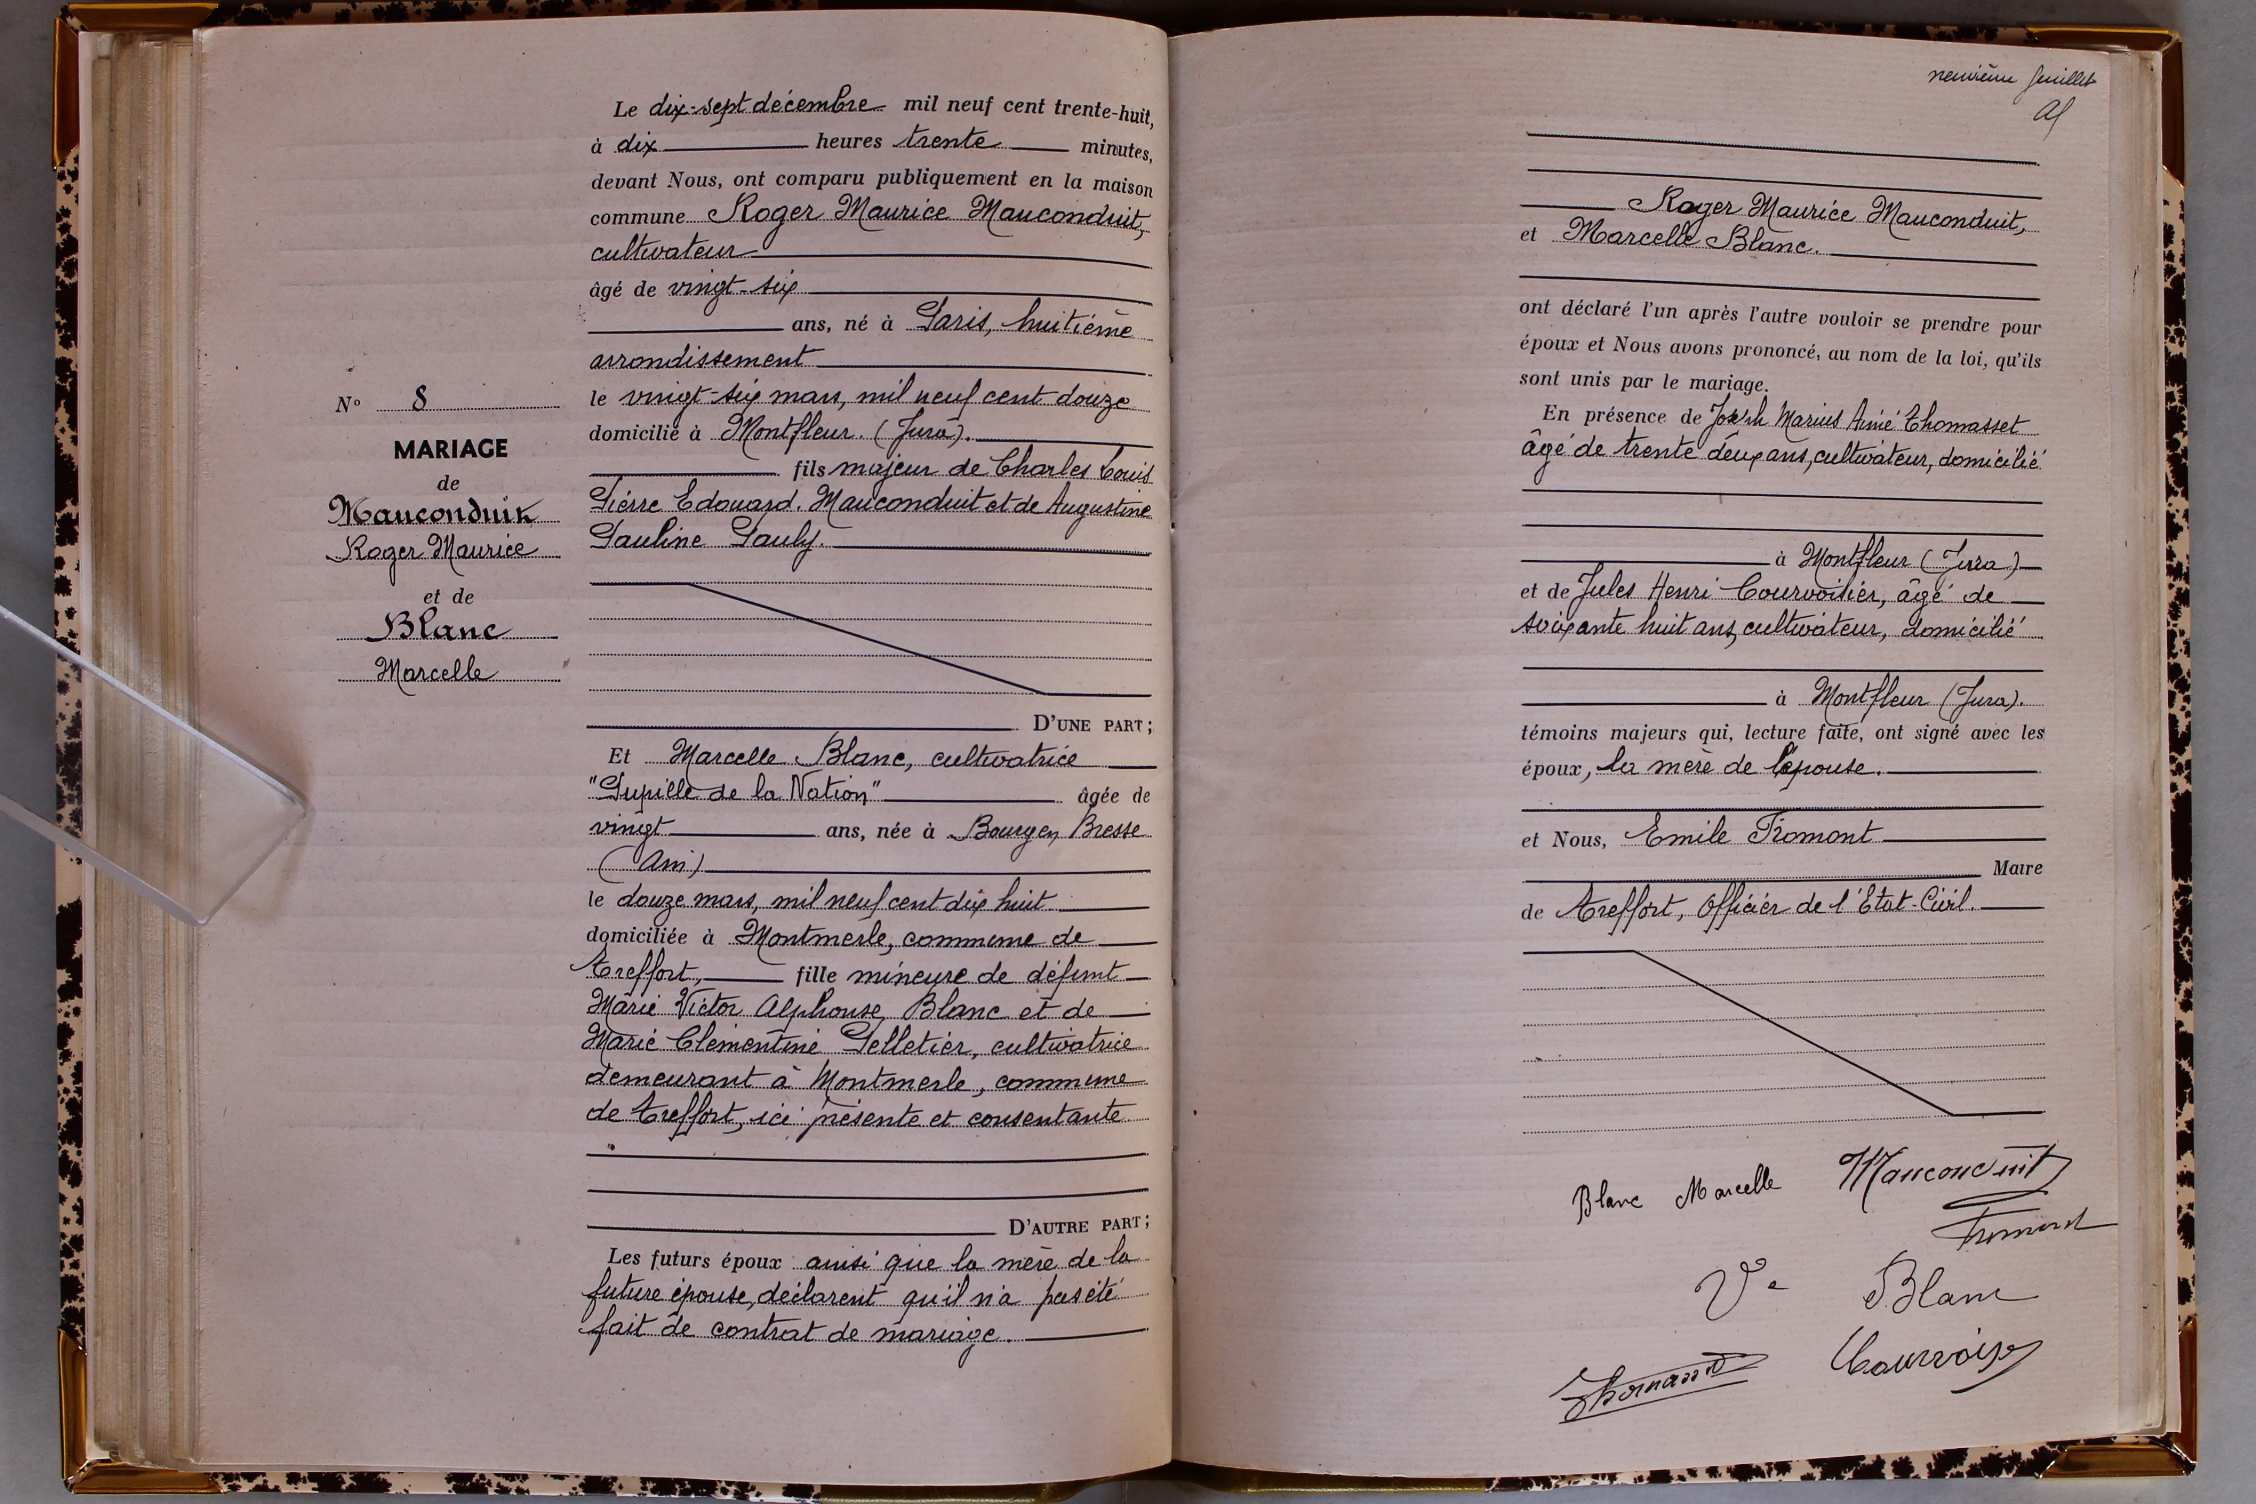 N° 8
MARIAGE
de
Mauconduit
Roger Maurice
et de
Blanc
Marcelle
Le dix-sept décembre mil neuf cent trente-huit,
à dix heures trente minutes,
devant Nous, ont comparu publiquement en la maison
commune Roger Maurice Mauconduit,
cultivateur
âgé de vingt-six
ans, né à Paris, huitième
arrondissement
le vingt-six mars, mil neuf cent douze
domicilié à Montfleur. (Jura).
fils majeur de Charles Louis
Pierre Edouard. Mauconduit et de Augustine
Pauline Pauly.
D'UNE PART;
Et Marcelle Blanc, cultivatrice
"Pupille de la Nation" âgée de
vingt ans, née à Bourg en Bresse
(Ain)
le douze mars, mil neuf cent dix huit
domiciliée à Montmerle, commune de
Treffort, fille mineure de défunt
Marie Victor Alphonse Blanc et de
Marie Clémentine Pelletier, cultivatrice
demeurant à Montmerle, commune
de Treffort, ici présente et consentante
D'AUTRE PART;
Les futurs époux ainsi que la mère de la
future épouse, déclarent qu'il n'a pas été
fait de contrat de mariage.
neuvième feuillet
Roger Maurice Mauconduit,
et Marcelle Blanc.
ont déclaré l'un après l'autre vouloir se prendre pour
époux et Nous avons prononcé, au nom de la loi, qu'ils
sont unis par le mariage.
En présence de Joseph Marius Aimé Thomasset
âgé de trente deux ans, cultivateur, domicilié
à Montfleur (Jura)
et de Jules Henri Courvoisier, âgé de
soixante huit ans, cultivateur, domicilié
à Montfleur (Jura).
témoins majeurs qui, lecture faite, ont signé avec les
époux, la mère de l'épouse.
et Nous, Emile Fromont
Maire
de Treffort, Officier de l'Etat-Civil.
Blanc Marcelle Mauconduit
Fromont
Ve Blanc
Courvoisier